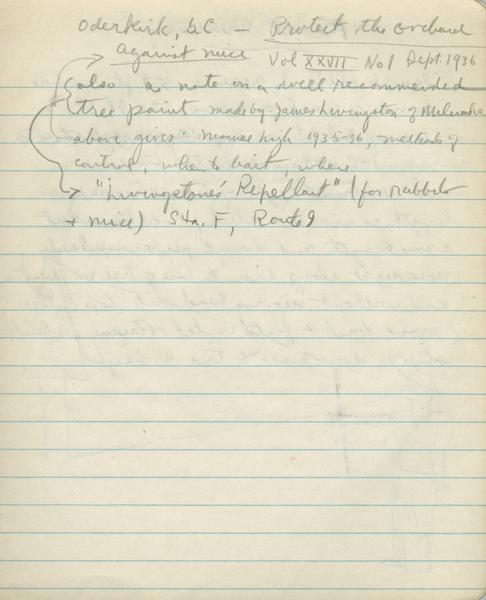 Oderkirk, GC — Protect the orchard
against mice Vol XXVII No 1 Sept. 1936
also a note on a well recommended
tree paint made by James Livingston of Milwaukee
above gives mouse high 1935-36, methods of
control, when to bait, where
"Livingstone's Repellant" (for rabbits
+ mice) Sta. F, Route 9